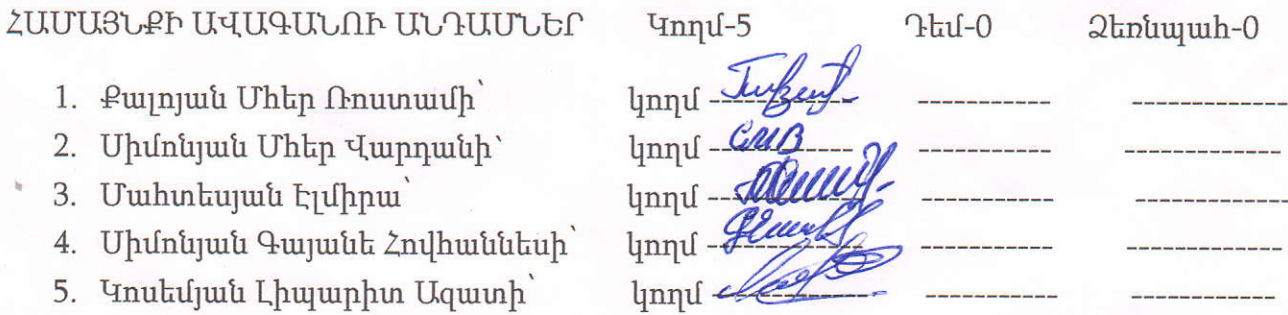 ՀԱՄԱՅՆՔԻ ԱՎԱԳԱՆՈՒ ԱՆԴԱՄՆԵՐ Կողմ-5 Դեմ-0 Ձեռնպահ-0
1. Քալոյան Մհեր Ռոստամի՝ կողմ ----------- ----------- --------------
2. Սիմոնյան Մհեր Վարդանի՝ կողմ ----------- СМВ ----------- --------------
3. Մահտեսյան Էլմիրա՝ կողմ ----------- ----------- --------------
4. Սիմոնյան Գայանե Հովհաննեսի՝ կողմ ----------- ----------- --------------
5. Կոսեմյան Լիպարիտ Ազատի՝ կողմ ----------- ----------- --------------